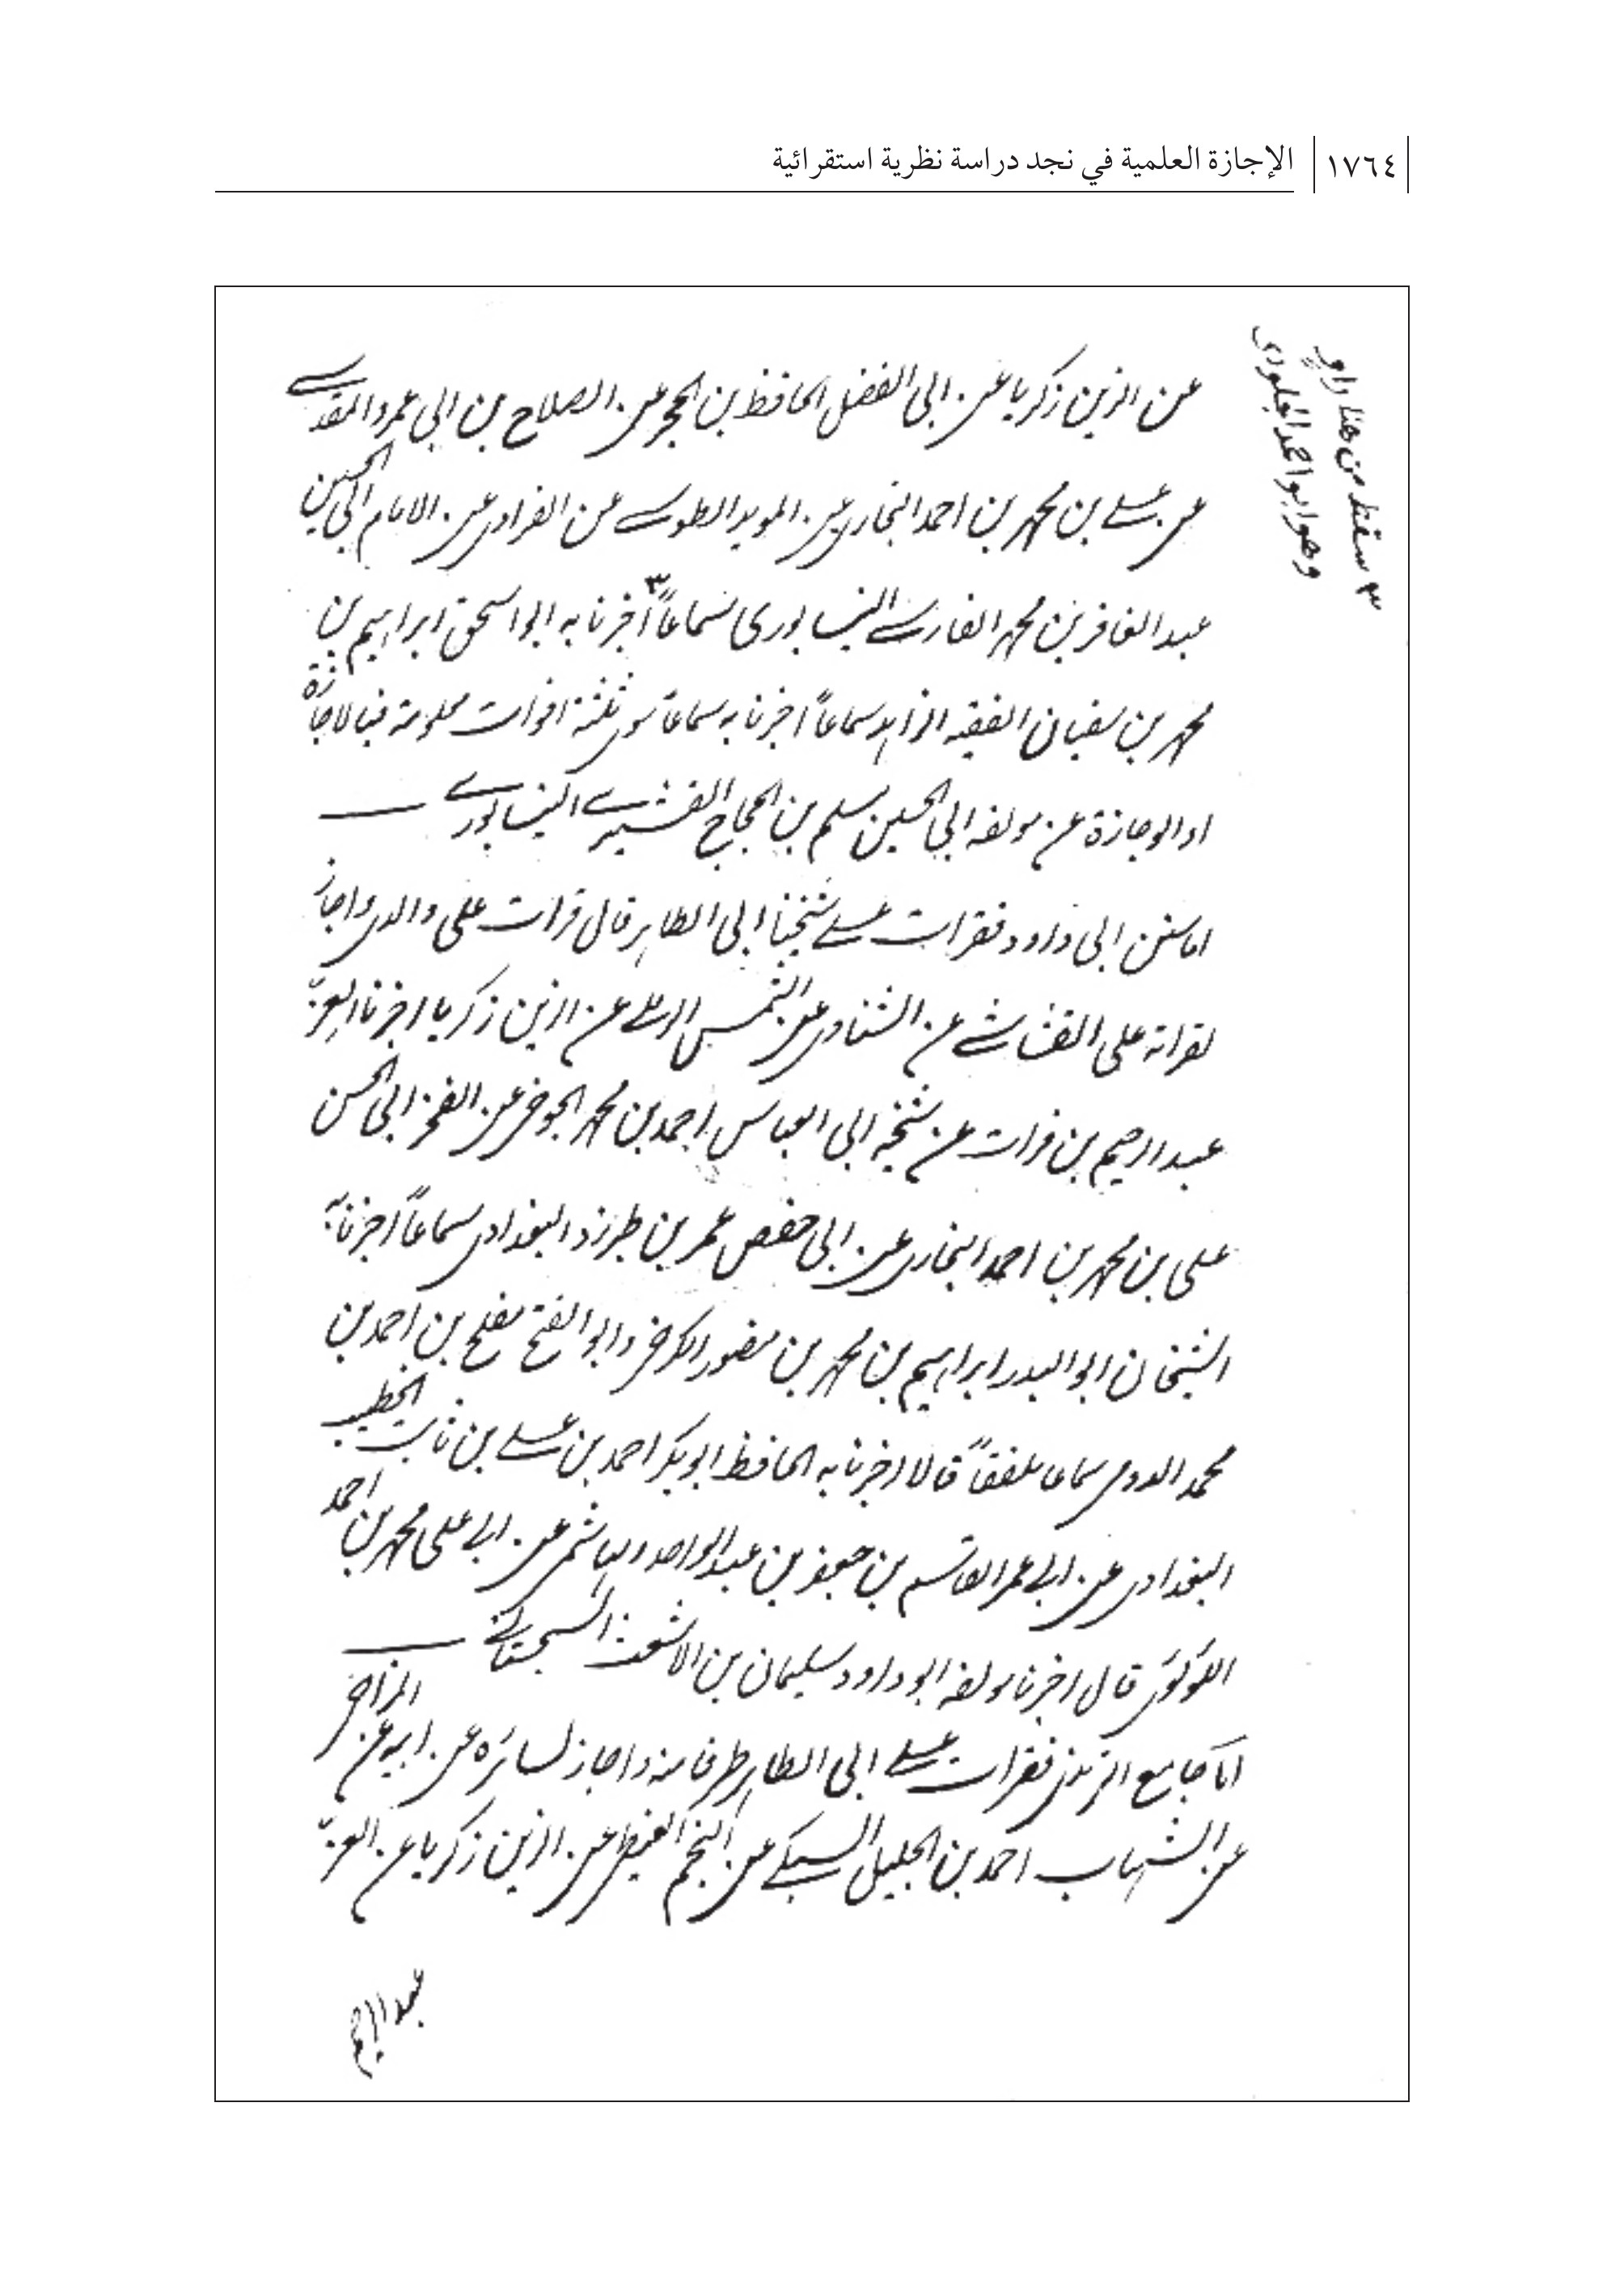 ١٧٦٤ الإجازة العلمية في نجد دراسة نظرية استقرائية
٣ سقط من هنا راوٍ
وهو ابو احمد الجلودى
عن الزين زكريا عن ابى الفضل الحافظ بن الحجر عن الصلاح بن ابى عمرو المقدسے
عن علے بن محمد بن احمد البخارى عن المويد الطوسے عن الفراوى عن الامام ابى الحسين
عبد الغافر بن محمد الفارسے النيسابورى سماعاً ٣ اخرنا به ابو اسحق ابراهيم بن
محمد بن سفيان الفقيه الزاهد سماعاً اخرنا به سماعا سوى ثلثة افوات معلومة فبالاجازة
او الوجازة عن مولفه ابى الحسين مسلم بن الحجاج القشيرے النيسابورے
اما سنن ابى داود فقرات علے شيخنا ابى الطاهر قال قرات على والدى واجاز
لقراته على القشاشے عن الشناوى عن الشمس الرملے عن الزين زكريا اخرنا العزّ
عبد الرحيم بن فرات عن شيخه ابى العباس احمد بن محمد الجوخى عن الفخر ابى الحسن
على بن محمد بن احمد البخارى عن ابى حفص عمر بن طبرزد البغدادى سماعاً اخرنا به
الشيخان ابو البدر ابراهيم بن محمد بن منصور الكرخى وابو الفتح مفلح بن احمد بن
محمد الدومى سماعا ملفقاً قالا اخرنا به الحافظ ابو بكر احمد بن علے بن ثابت الخطيب
البغدادى عن ابى عمر القاسم بن جعفر بن عبد الواحد الهاشمى عن ابى على محمد بن احمد
اللولوى قال اخرنا مولفه ابو داود سليمان بن الاشعث السجستانے
اما جامع الترمذى فقرات علے ابى الطاهر طرفا منه واجاز لسائره عن ابيه عن المزاحى
عن الشهاب احمد بن الخليل السبكے عن النجم الغيطى عن الزين زكريا عن العزّ
عبد الرحيم